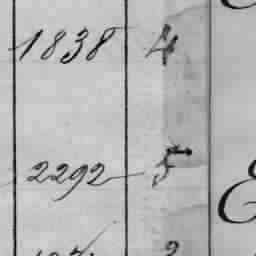 1838 4
2292 5